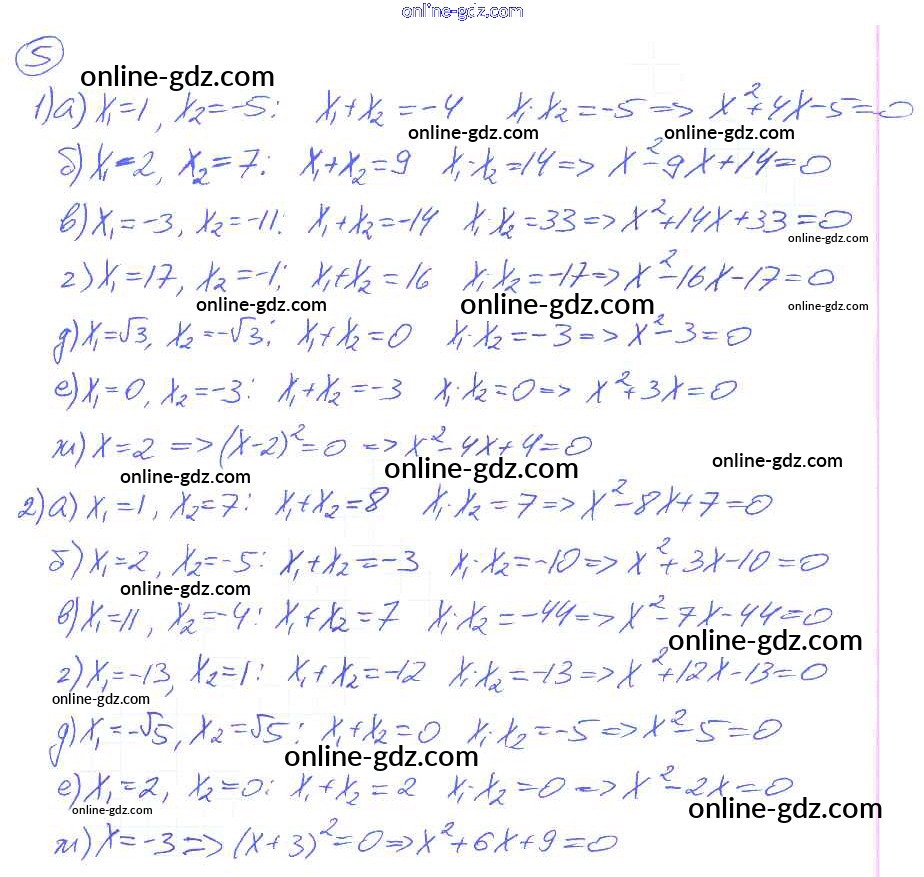 online-gdz.com
5
online-gdz.com
1) а) x₁=1, x₂=-5: x₁+x₂=-4 x₁·x₂=-5 => x²+4x-5=0
online-gdz.com online-gdz.com
б) x₁=2, x₂=7: x₁+x₂=9 x₁·x₂=14 => x²-9x+14=0
в) x₁=-3, x₂=-11: x₁+x₂=-14 x₁·x₂=33 => x²+14x+33=0
online-gdz.com
г) x₁=17, x₂=-1; x₁+x₂=16 x₁·x₂=-17 => x²-16x-17=0
online-gdz.com online-gdz.com online-gdz.com
д) x₁=√3, x₂=-√3: x₁+x₂=0 x₁·x₂=-3 => x²-3=0
е) x₁=0, x₂=-3: x₁+x₂=-3 x₁·x₂=0 => x²+3x=0
ж) x=2 => (x-2)²=0 => x²-4x+4=0
online-gdz.com online-gdz.com online-gdz.com
2) а) x₁=1, x₂=7: x₁+x₂=8 x₁·x₂=7 => x²-8x+7=0
б) x₁=2, x₂=-5: x₁+x₂=-3 x₁·x₂=-10 => x²+3x-10=0
online-gdz.com
в) x₁=11, x₂=-4: x₁+x₂=7 x₁·x₂=-44 => x²-7x-44=0
online-gdz.com
г) x₁=-13, x₂=1: x₁+x₂=-12 x₁·x₂=-13 => x²+12x-13=0
online-gdz.com
д) x₁=-√5, x₂=√5: x₁+x₂=0 x₁·x₂=-5 => x²-5=0
online-gdz.com
е) x₁=2, x₂=0: x₁+x₂=2 x₁·x₂=0 => x²-2x=0
online-gdz.com online-gdz.com
ж) x=-3 => (x+3)²=0 => x²+6x+9=0